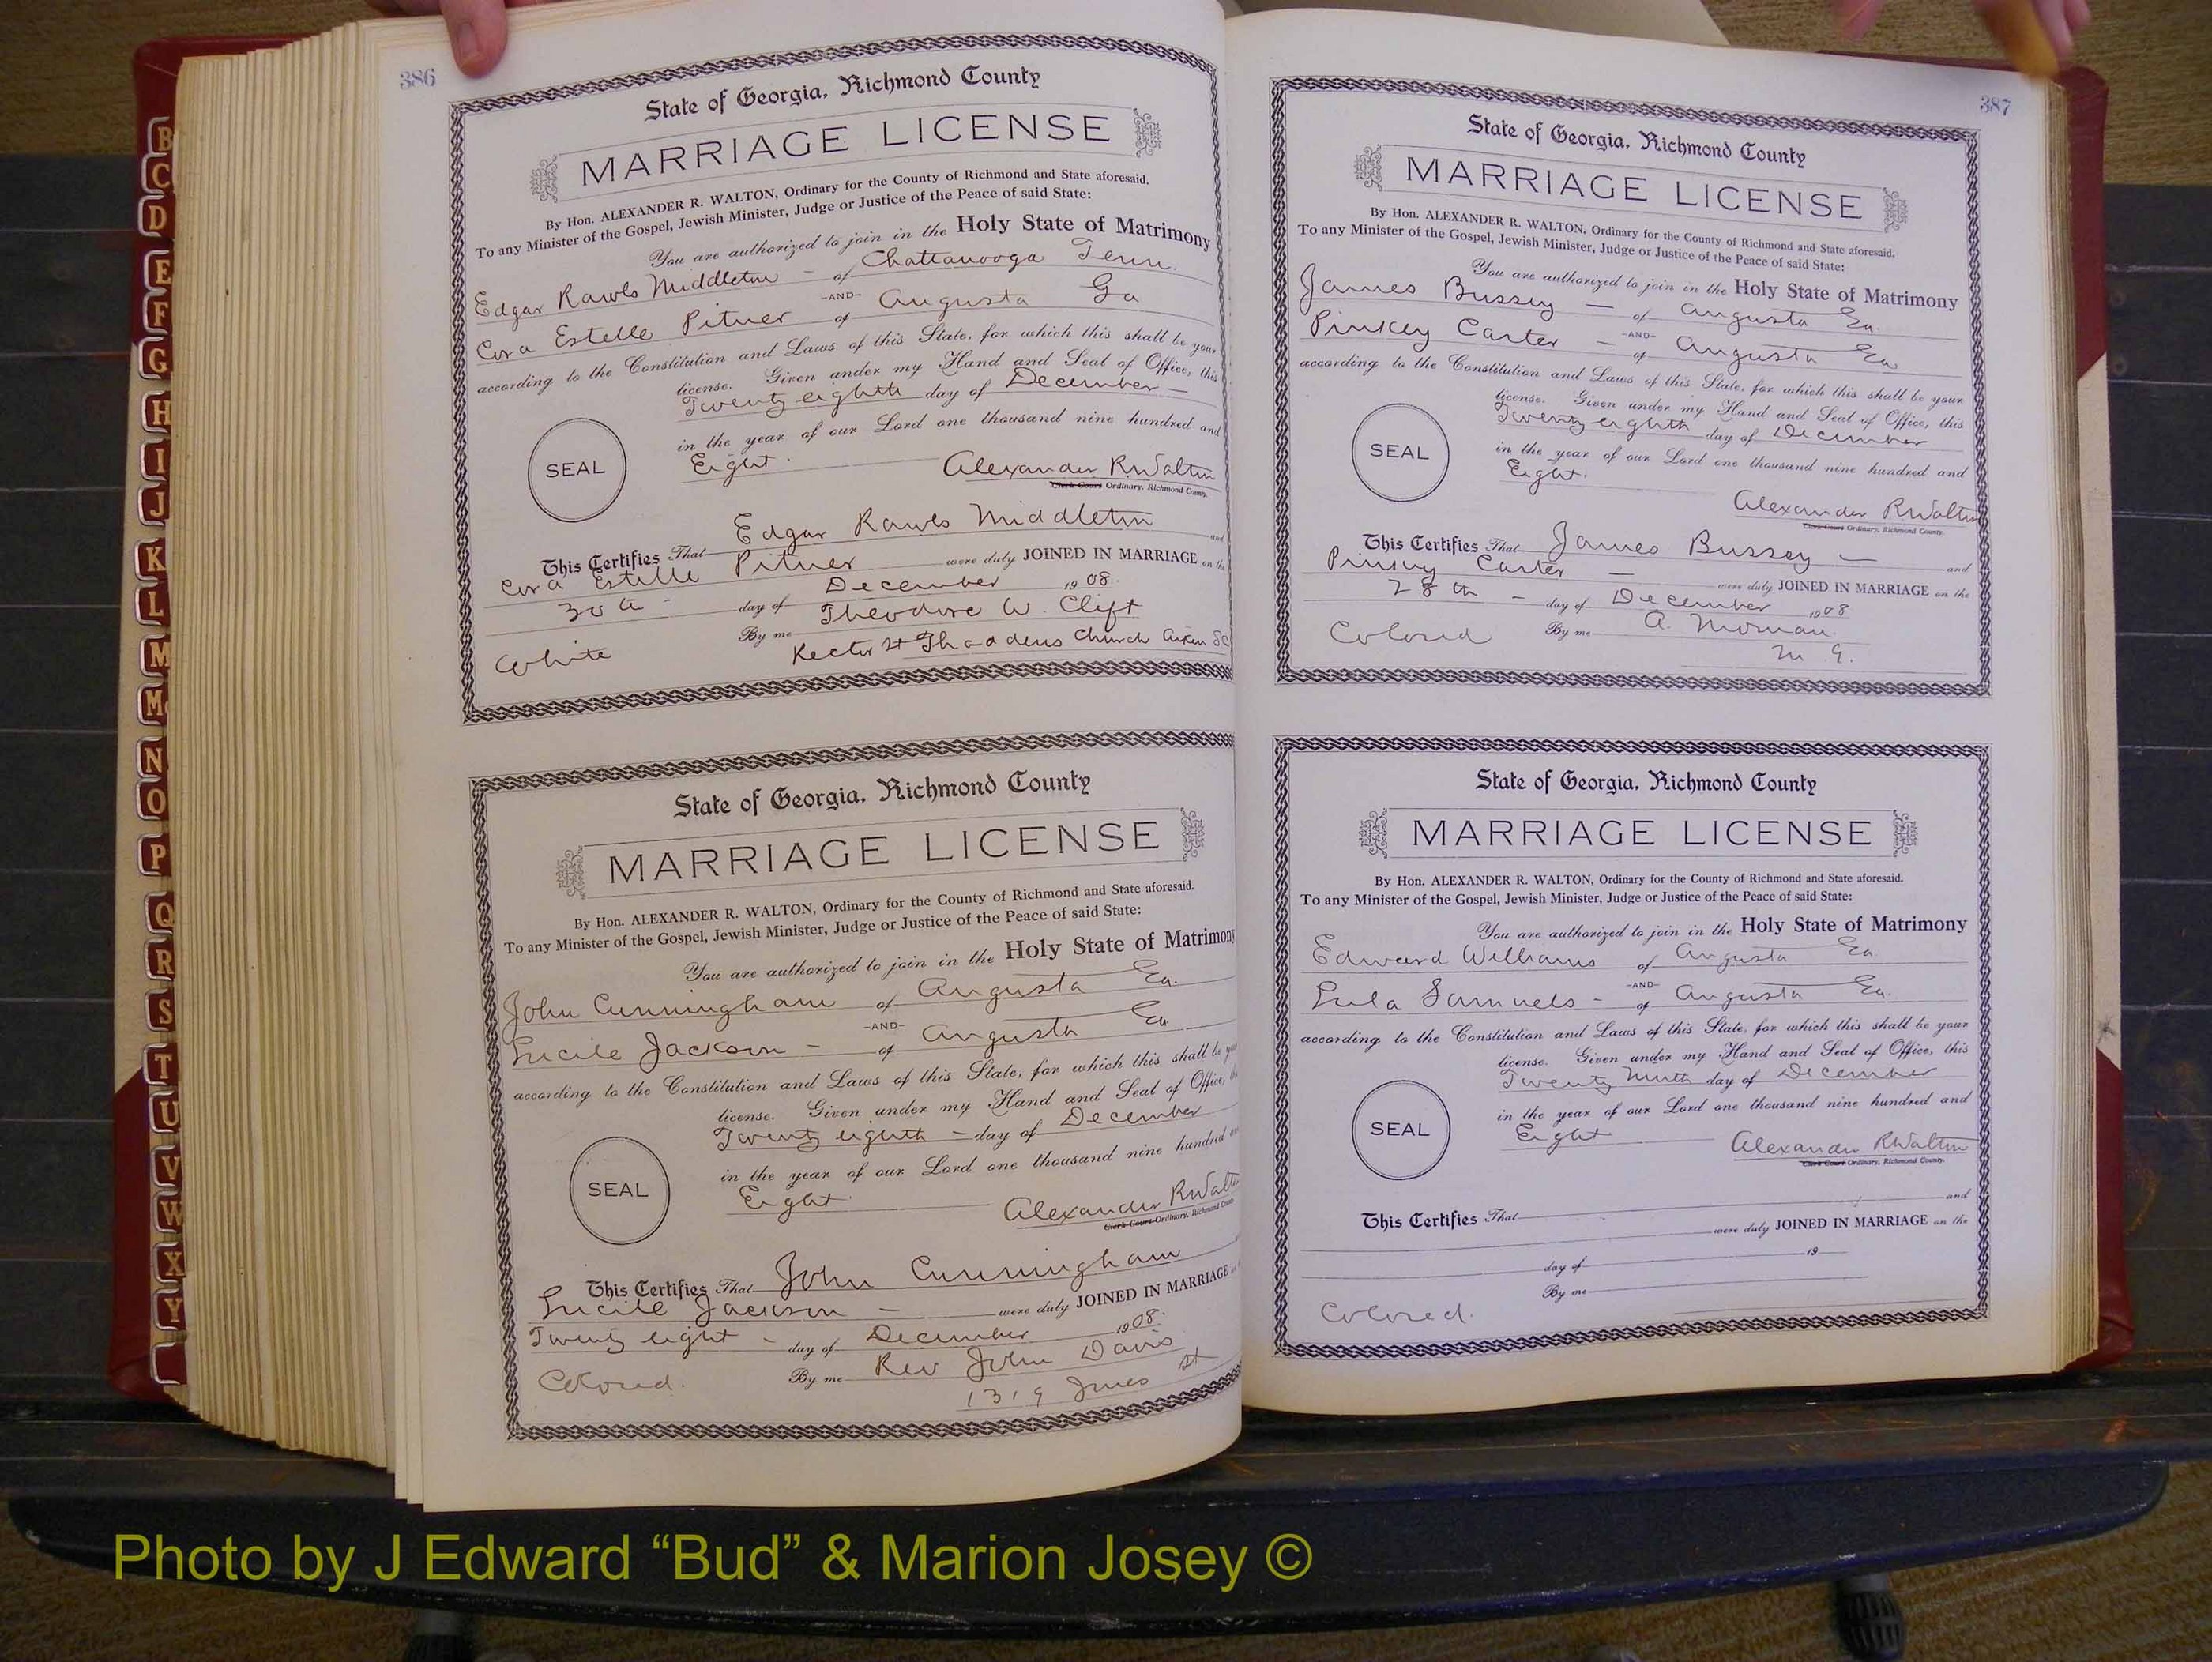 386
State of Georgia, Richmond County
MARRIAGE LICENSE
By Hon. ALEXANDER R. WALTON, Ordinary for the County of Richmond and State aforesaid.
To any Minister of the Gospel, Jewish Minister, Judge or Justice of the Peace of said State:
You are authorized to join in the Holy State of Matrimony
Edgar Rawls Middleton - of Chattanooga Tenn.
-AND-
Cora Estelle Pitner of Augusta Ga
according to the Constitution and Laws of this State, for which this shall be your
license. Given under my Hand and Seal of Office, this
Twenty eighth day of December -
in the year of our Lord one thousand nine hundred and
SEAL
Eight. Alexander R Walton
Clerk Court Ordinary, Richmond County.
Edgar Rawls Middleton and
This Certifies That
Cora Estelle Pitner were duly JOINED IN MARRIAGE on the
30th - day of December 1908.
By me Theodore W. Clift
White Rector St Thaddeus Church Aiken SC
State of Georgia, Richmond County
MARRIAGE LICENSE
By Hon. ALEXANDER R. WALTON, Ordinary for the County of Richmond and State aforesaid.
To any Minister of the Gospel, Jewish Minister, Judge or Justice of the Peace of said State:
You are authorized to join in the Holy State of Matrimony
John Cunningham of Augusta Ga.
-AND-
Lucile Jackson - of Augusta Ga
according to the Constitution and Laws of this State, for which this shall be
license. Given under my Hand and Seal of Office,
Twenty eighth - day of December
in the year of our Lord one thousand nine hundred
SEAL
Eight Alexander R Walton
Clerk Court Ordinary, Richmond County
This Certifies That John Cunningham
Lucile Jackson - were duly JOINED IN MARRIAGE
Twenty eight - day of December 1908.
Colored. By me Rev John Davis
1319 Jones St
387
State of Georgia, Richmond County
MARRIAGE LICENSE
By Hon. ALEXANDER R. WALTON, Ordinary for the County of Richmond and State aforesaid.
To any Minister of the Gospel, Jewish Minister, Judge or Justice of the Peace of said State:
You are authorized to join in the Holy State of Matrimony
James Bussey - of Augusta Ga.
-AND-
Pinkey Carter - of Augusta Ga
according to the Constitution and Laws of this State, for which this shall be your
license. Given under my Hand and Seal of Office, this
Twenty eighth day of December
in the year of our Lord one thousand nine hundred and
SEAL
Eight. Alexander R Walton
Clerk Court Ordinary, Richmond County.
This Certifies That James Bussey - and
Pinkey Carter - were duly JOINED IN MARRIAGE on the
28th - day of December 1908
Colored By me A.
M G.
State of Georgia, Richmond County
MARRIAGE LICENSE
By Hon. ALEXANDER R. WALTON, Ordinary for the County of Richmond and State aforesaid.
To any Minister of the Gospel, Jewish Minister, Judge or Justice of the Peace of said State:
You are authorized to join in the Holy State of Matrimony
Edward Williams of Augusta Ga.
-AND-
Lula Samuels - of Augusta Ga.
according to the Constitution and Laws of this State, for which this shall be your
license. Given under my Hand and Seal of Office, this
Twenty Ninth day of December
in the year of our Lord one thousand nine hundred and
SEAL
Eight Alexander R Walton
Clerk Court Ordinary, Richmond County.
and
This Certifies That
were duly JOINED IN MARRIAGE on the
day of 19
By me
Colored.
B
C
D
E
F
G
H
I
J
K
L
M
Mc
N
O
P
Q
R
S
T
U
V
W
X
Y
Photo by J Edward “Bud” & Marion Josey ©